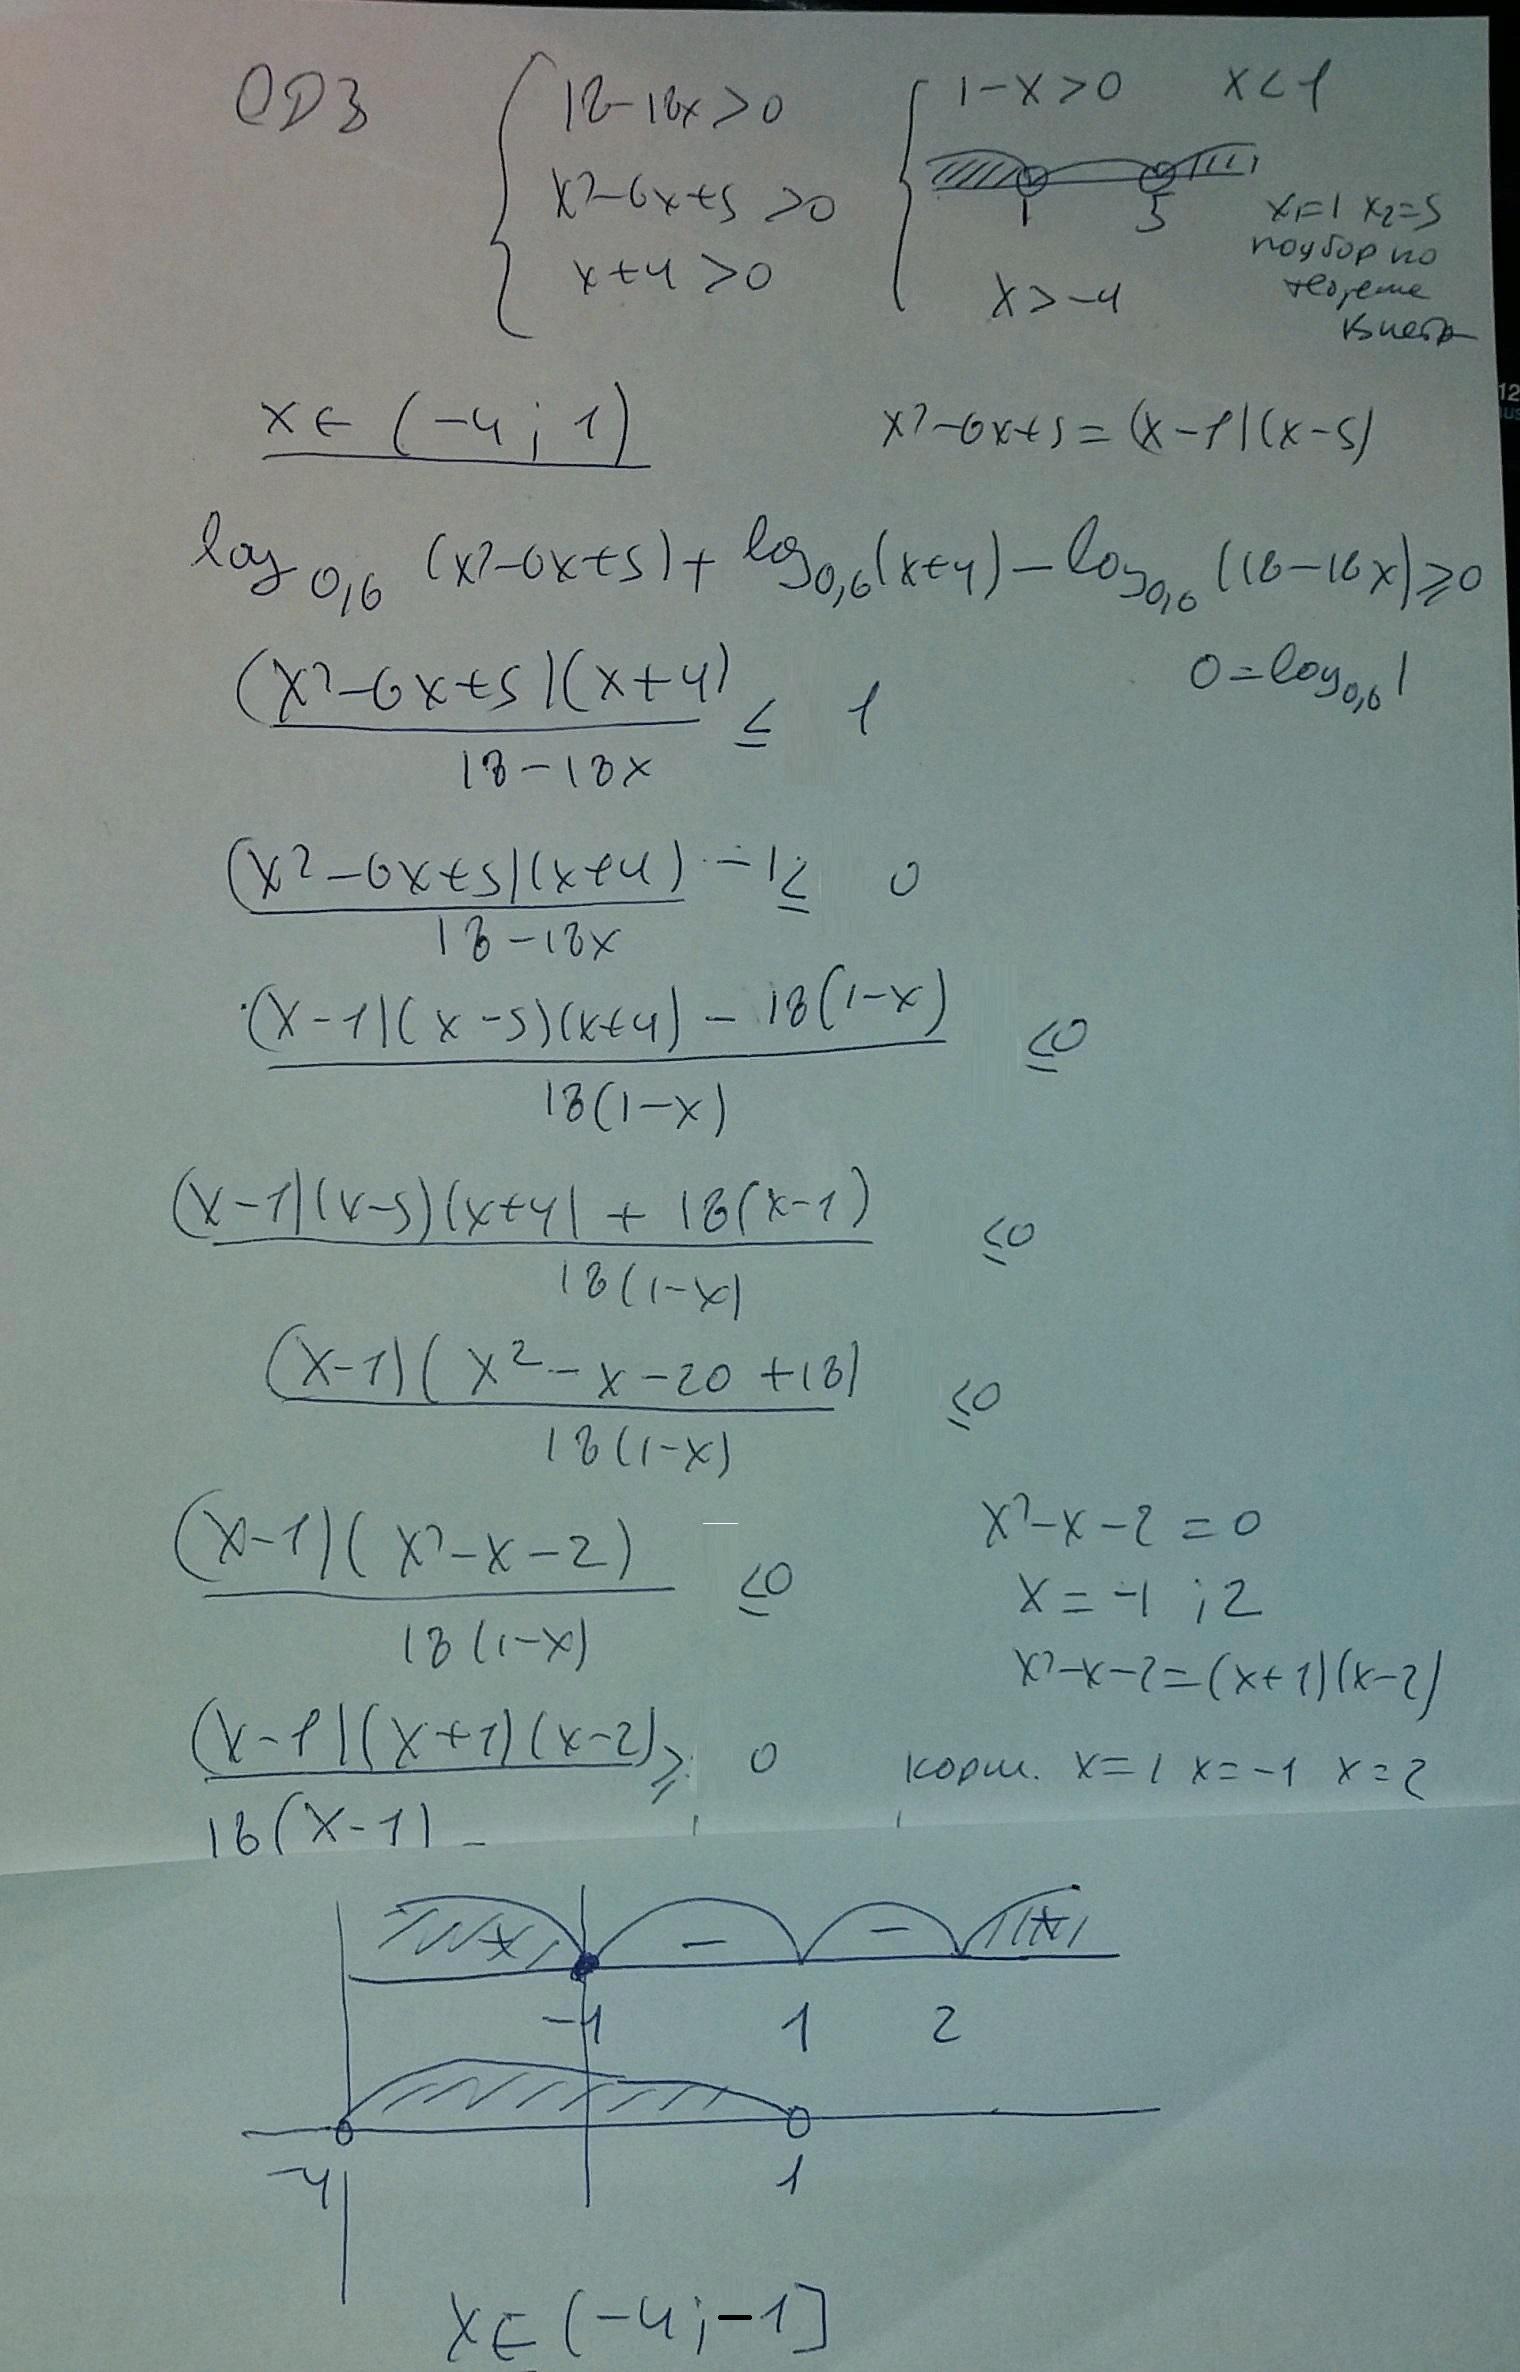 ОДЗ
18-18x>0
x²-6x+5>0
x+4>0
1-x>0 x<1
1 5
x₁=1 x₂=5
подбор по
теореме
Виета
x>-4
x∈(-4; 1)
x²-6x+5=(x-1)(x-5)
log₀,₆(x²-6x+5)+log₀,₆(x+4)-log₀,₆(18-18x)≥0
(x²-6x+5)(x+4)
≤ 1
0=log₀,₆1
18-18x
(x²-6x+5)(x+4) -1≤ 0
18-18x
(x-1)(x-5)(x+4)-18(1-x)
≤0
18(1-x)
(x-1)(x-5)(x+4)+18(x-1)
≤0
18(1-x)
(x-1)(x²-x-20+18)
≤0
18(1-x)
(x-1)(x²-x-2)
≤0
18(1-x)
x²-x-2=0
x=-1 ;2
x²-x-2=(x+1)(x-2)
(x-1)(x+1)(x-2) ≥ 0
18(x-1)
корни. x=1 x=-1 x=2
+ - - +
-1 1 2
-4 1
x∈(-4;-1]